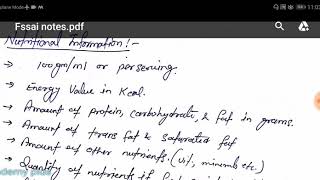 plane Mode
11:0
Fssai notes.pdf
Nutritional Information:-
→ 100gm/ml or perserving.
→ Energy Value in Kcal.
→ Amount of protein, carbohydrate, & fat in grams.
→ Amount of trans fat & saturated fat
→ Amount of other nutrients. (vit, minerals etc.)
→ Quantity of nutrients if